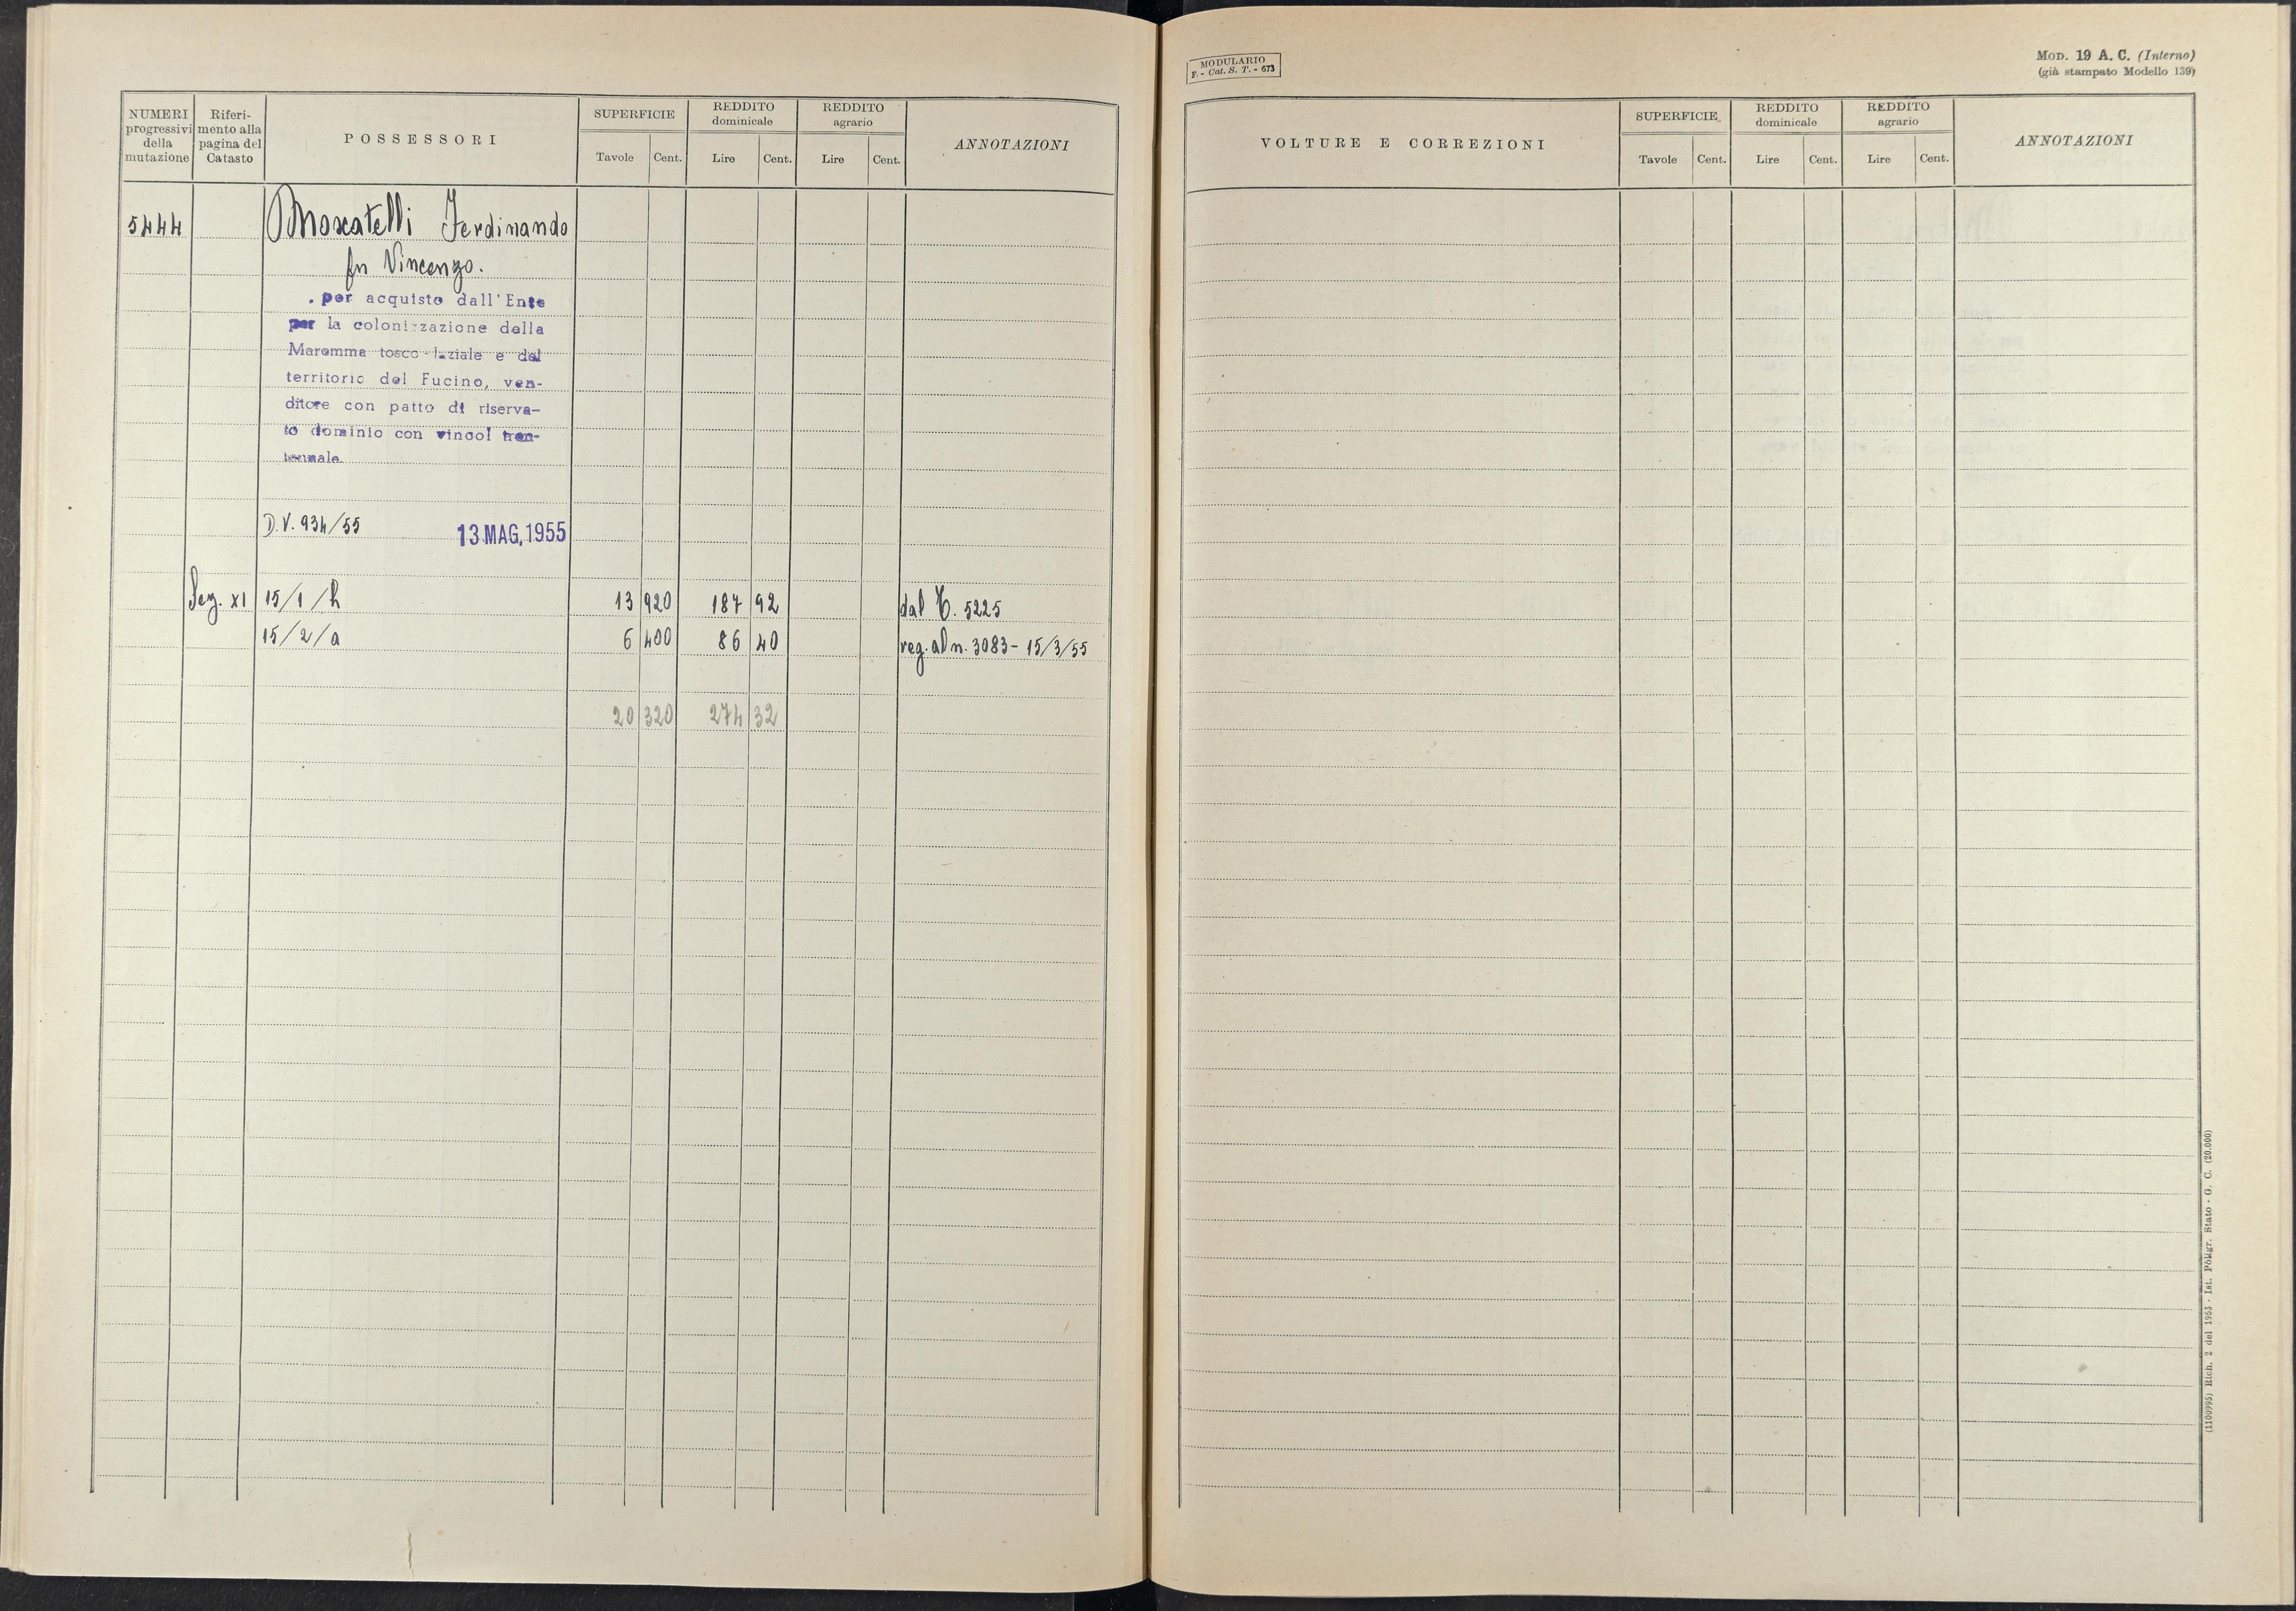 NUMERI progressivi della mutazione
Riferimento alla pagina del Catasto
POSSESSORI
SUPERFICIE
Tavole Cent.
REDDITO dominicale
Lire Cent.
REDDITO agrario
Lire Cent.
ANNOTAZIONI
5444 Moscatelli Ferdinando
fu Vincenzo.
per acquisto dall'Ente
per la colonizzazione della
Maremma tosco-laziale e del
territorio del Fucino, ven-
ditore con patto di riserva-
to dominio con vincol tren-
tennale.
D.V. 934/55 13 MAG. 1955
Sez. XI 15/1/h 13 920 187 92 dal C. 5225
15/2/a 6 400 86 40 reg. al n. 3083 - 15/3/55
20 320 274 32
MODULARIO
F. - Cat. S. T. - 673
MOD. 19 A. C. (Interno)
(già stampato Modello 139)
VOLTURE E CORREZIONI
SUPERFICIE
Tavole Cent.
REDDITO dominicale
Lire Cent.
REDDITO agrario
Lire Cent.
ANNOTAZIONI
(1100995) Rich. 2 del 1953 - Ist. Poligr. Stato - G. C. (20.000)